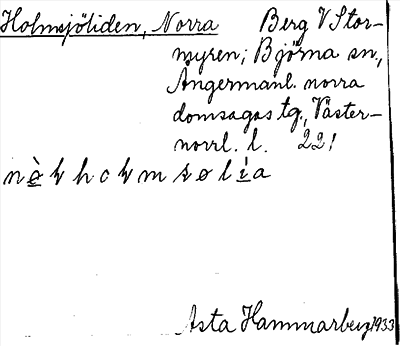 Holmsjöliden, Norra Berg V Stor-
myren; Björna sn.,
Ångermanl. norra
domsagas tg., Väster-
norrl. l. 22!
Asta Hammarberg 1933